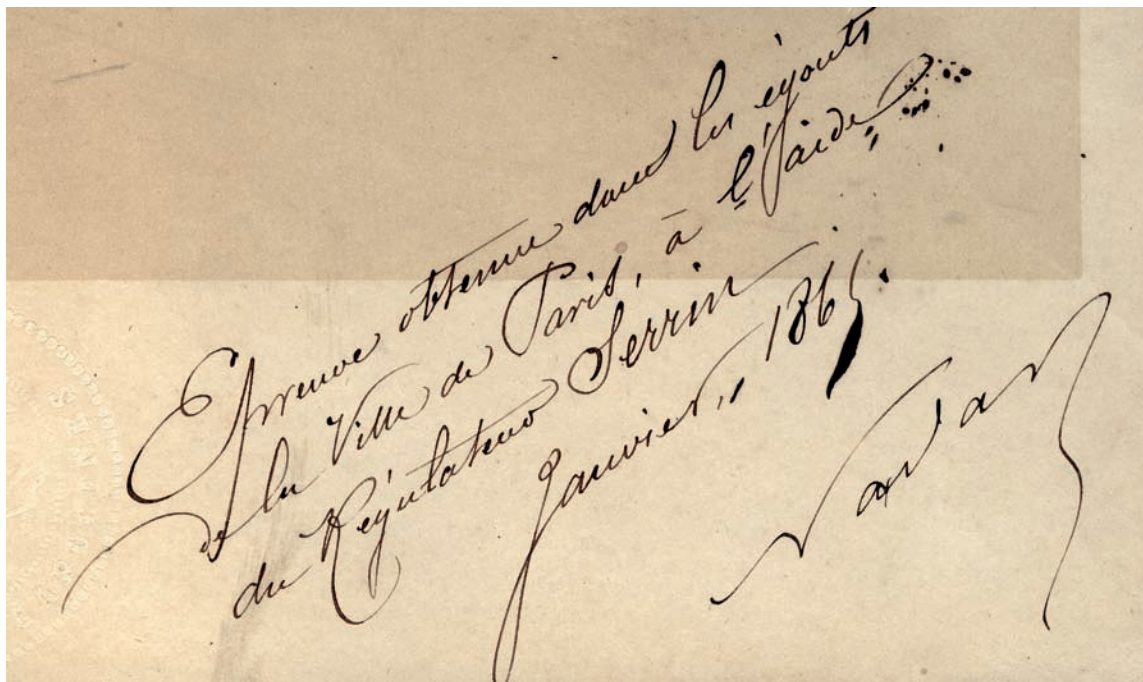 Epreuve obtenue dans les égouts
de la Ville de Paris, à l'aide
du Régulateur Serrin.
Janvier, 1865.
Nadar